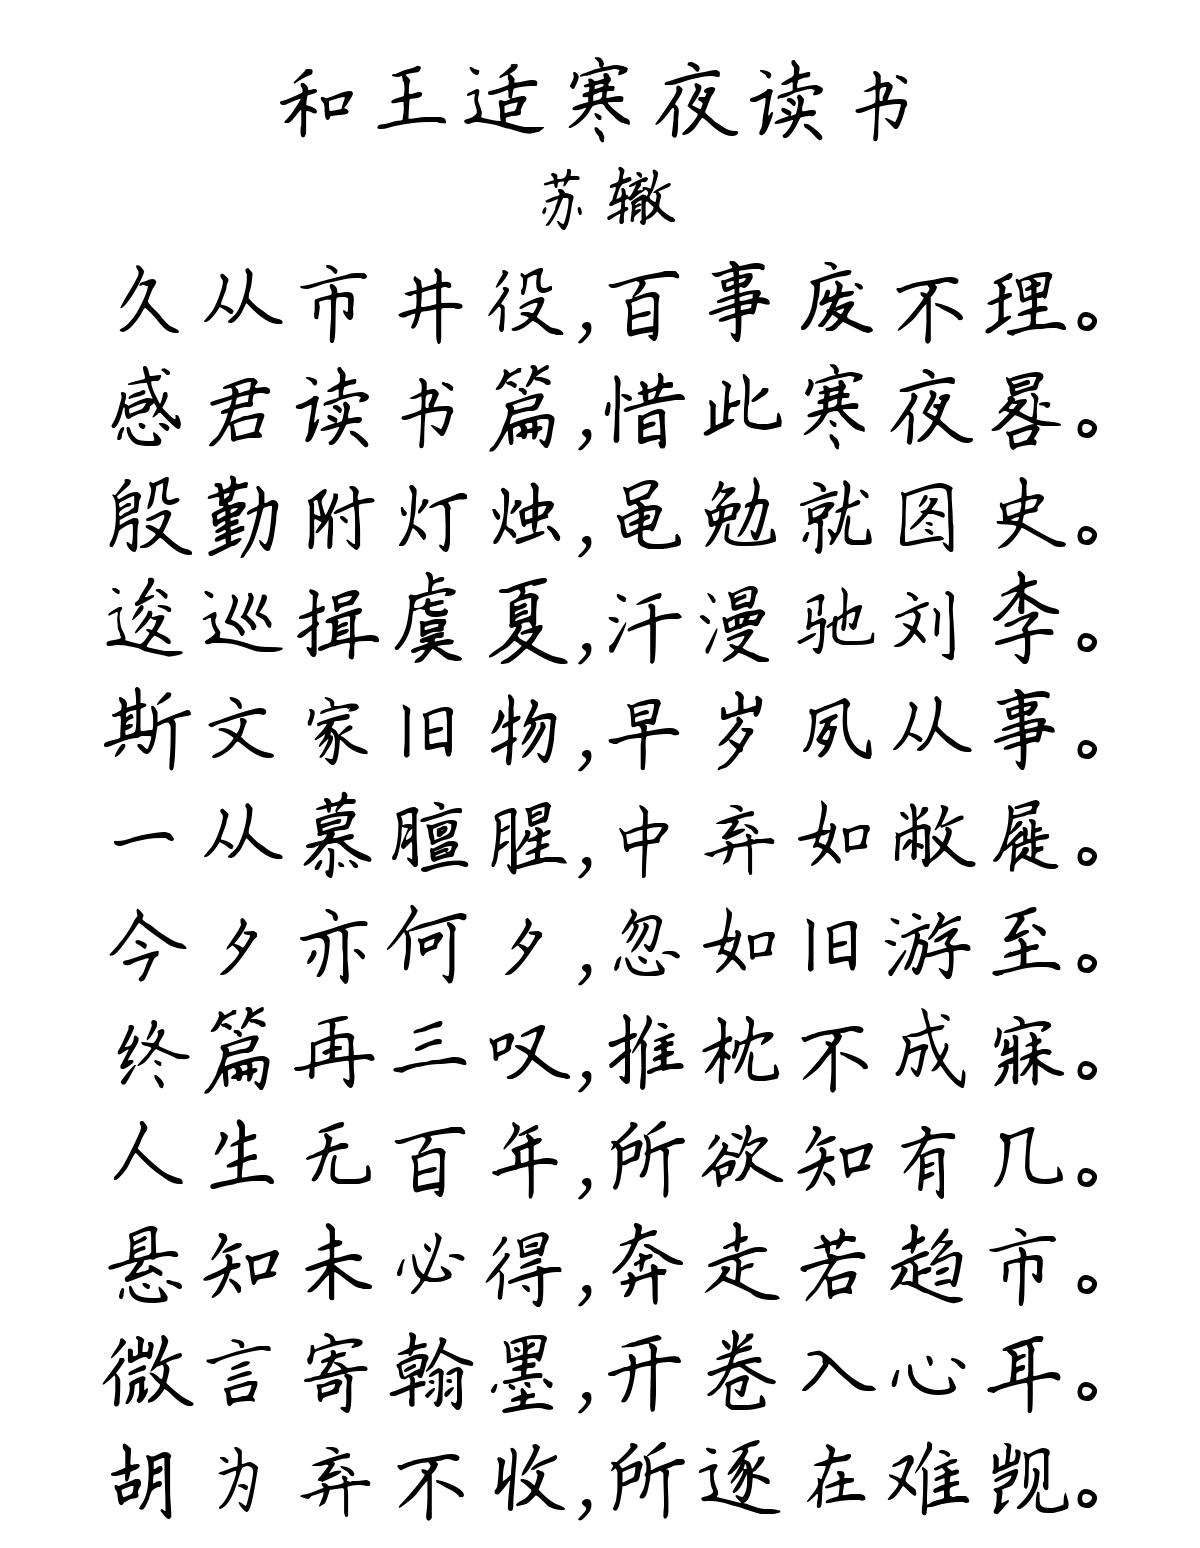 和王适寒夜读书
苏辙
久从市井役,百事废不理。
感君读书篇,惜此寒夜晷。
殷勤附灯烛,黾勉就图史。
逡巡揖虞夏,汗漫驰刘李。
斯文家旧物,早岁夙从事。
一从慕膻腥,中弃如敝屣。
今夕亦何夕,忽如旧游至。
终篇再三叹,推枕不成寐。
人生无百年,所欲知有几。
悬知未必得,奔走若趋市。
微言寄翰墨,开卷入心耳。
胡为弃不收,所逐在难觊。